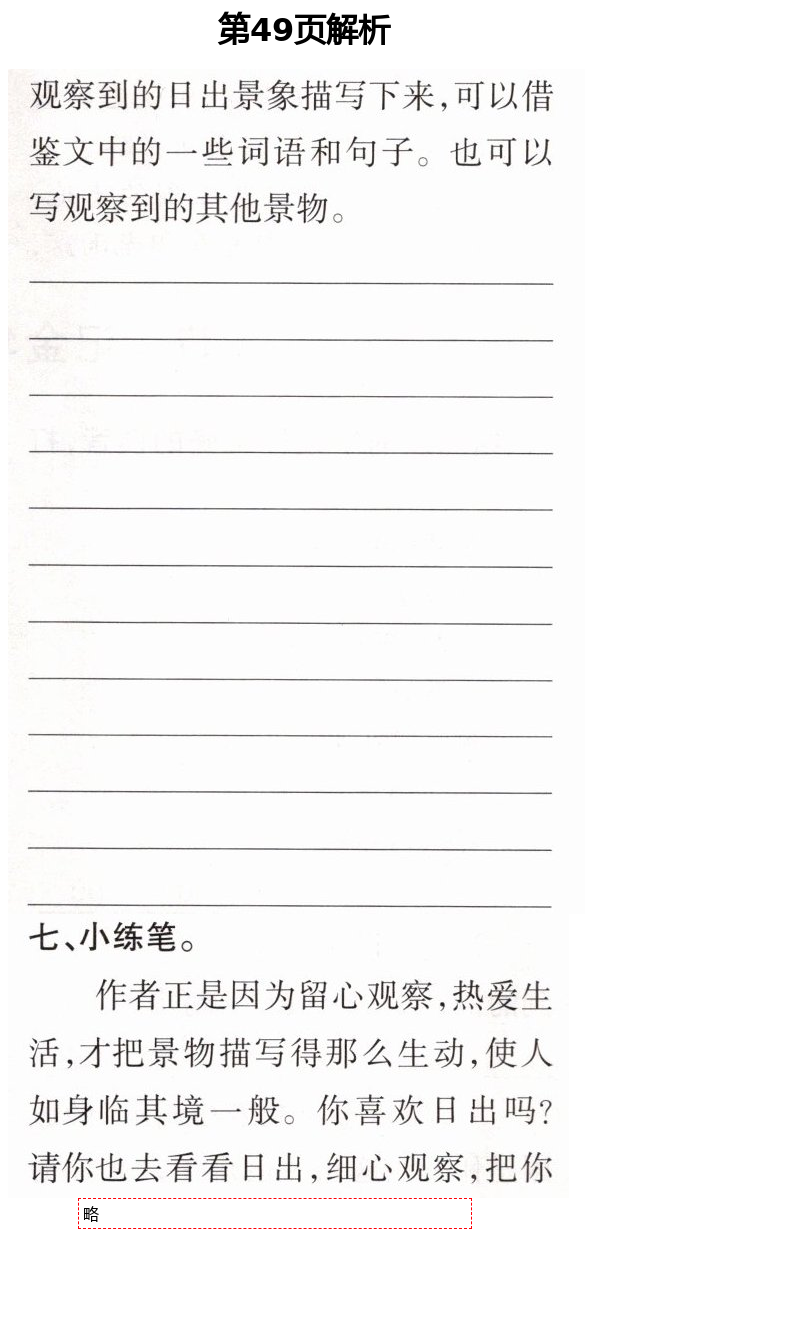 第49页解析
观察到的日出景象描写下来,可以借
鉴文中的一些词语和句子。也可以
写观察到的其他景物。
七、小练笔。
作者正是因为留心观察,热爱生
活,才把景物描写得那么生动,使人
如身临其境一般。你喜欢日出吗?
请你也去看看日出,细心观察,把你
略